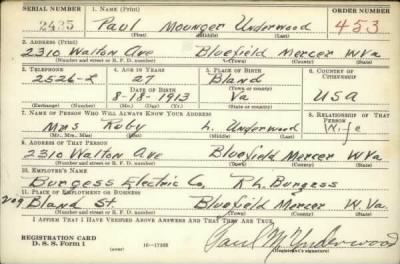 SERIAL NUMBER 1. NAME (Print) ORDER NUMBER
2435 Paul Mounger Underwood 453
(First) (Middle) (Last)
2. ADDRESS (Print)
2310 Walton Ave Bluefield Mercer W Va
(Number and street or R. F. D. number) (Town) (County) (State)
3. TELEPHONE 4. AGE IN YEARS 5. PLACE OF BIRTH 6. COUNTRY OF CITIZENSHIP
2526-L 27 Bland
DATE OF BIRTH (Town or county)
8-18-1913 Va USA
(Exchange) (Number) (Mo.) (Day) (Yr.) (State or country)
7. NAME OF PERSON WHO WILL ALWAYS KNOW YOUR ADDRESS 8. RELATIONSHIP OF THAT PERSON
Mrs Ruby L. Underwood Wife
(Mr., Mrs., Miss) (First) (Middle) (Last)
9. ADDRESS OF THAT PERSON
2310 Walton Ave Bluefield Mercer W Va
(Number and street or R. F. D. number) (Town) (County) (State)
10. EMPLOYER'S NAME
Burgess Electric Co, R L. Burgess
11. PLACE OF EMPLOYMENT OR BUSINESS
Bland St. Bluefield Mercer W. Va.
(Number and street or R. F. D. number) (Town) (County) (State)
I AFFIRM THAT I HAVE VERIFIED ABOVE ANSWERS AND THAT THEY ARE TRUE.
REGISTRATION CARD
D. S. S. Form 1 16-17105 Paul M. Underwood
(Registrant's signature)